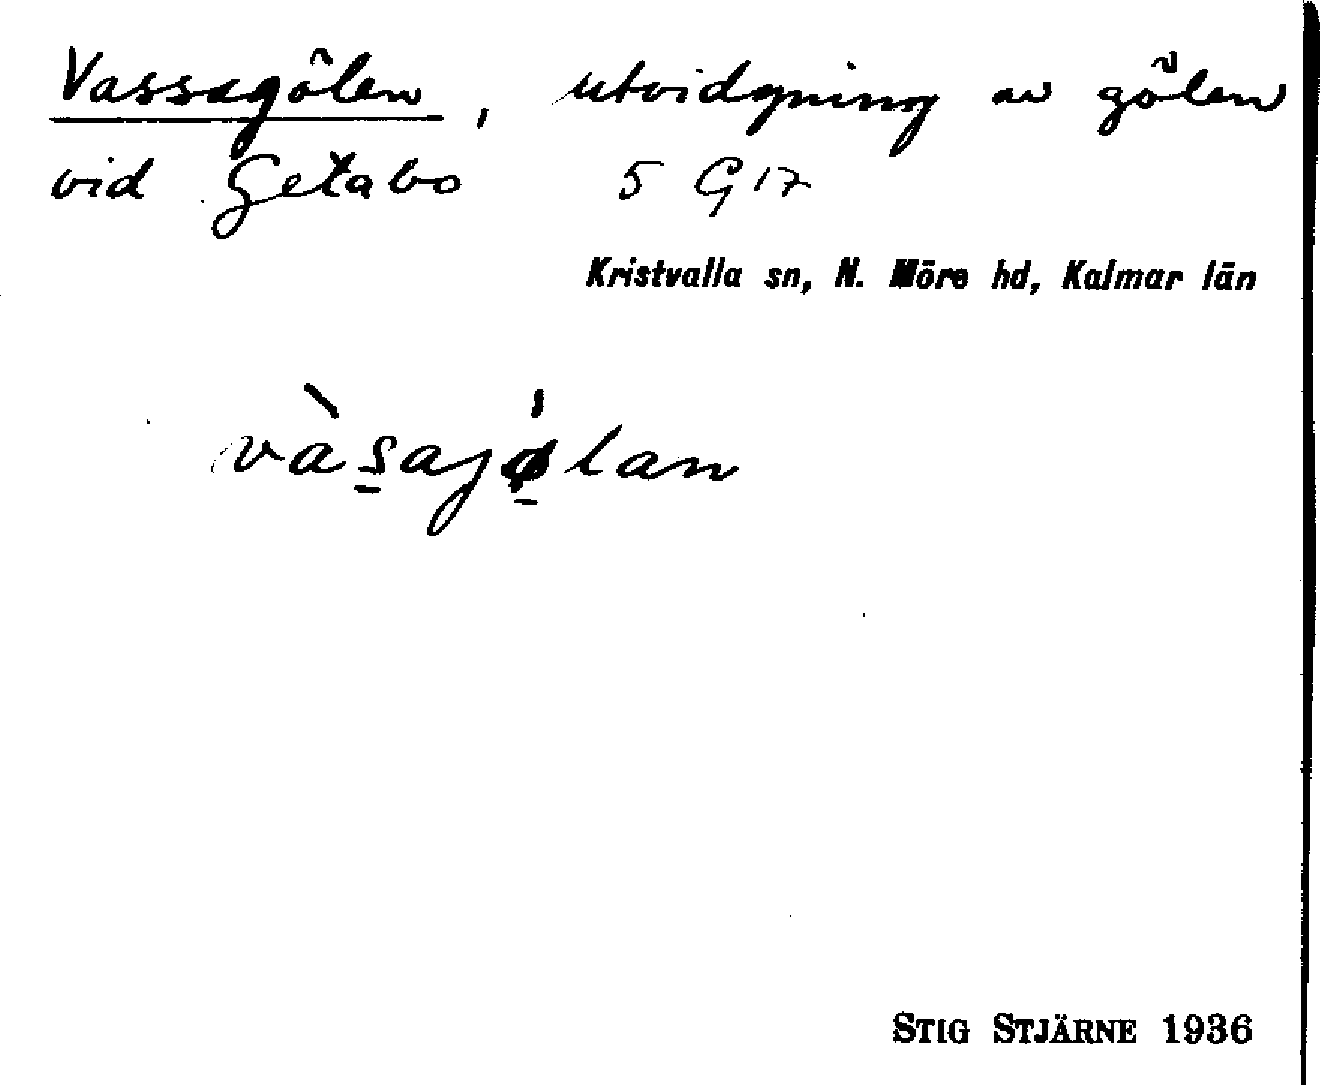 Vassagölen, utvidgning av gölen
vid Getabo 5 G 17
Kristvalla sn, N. Möre hd, Kalmar län
vàs̱ajǿ̱lan
STIG STJÄRNE 1936